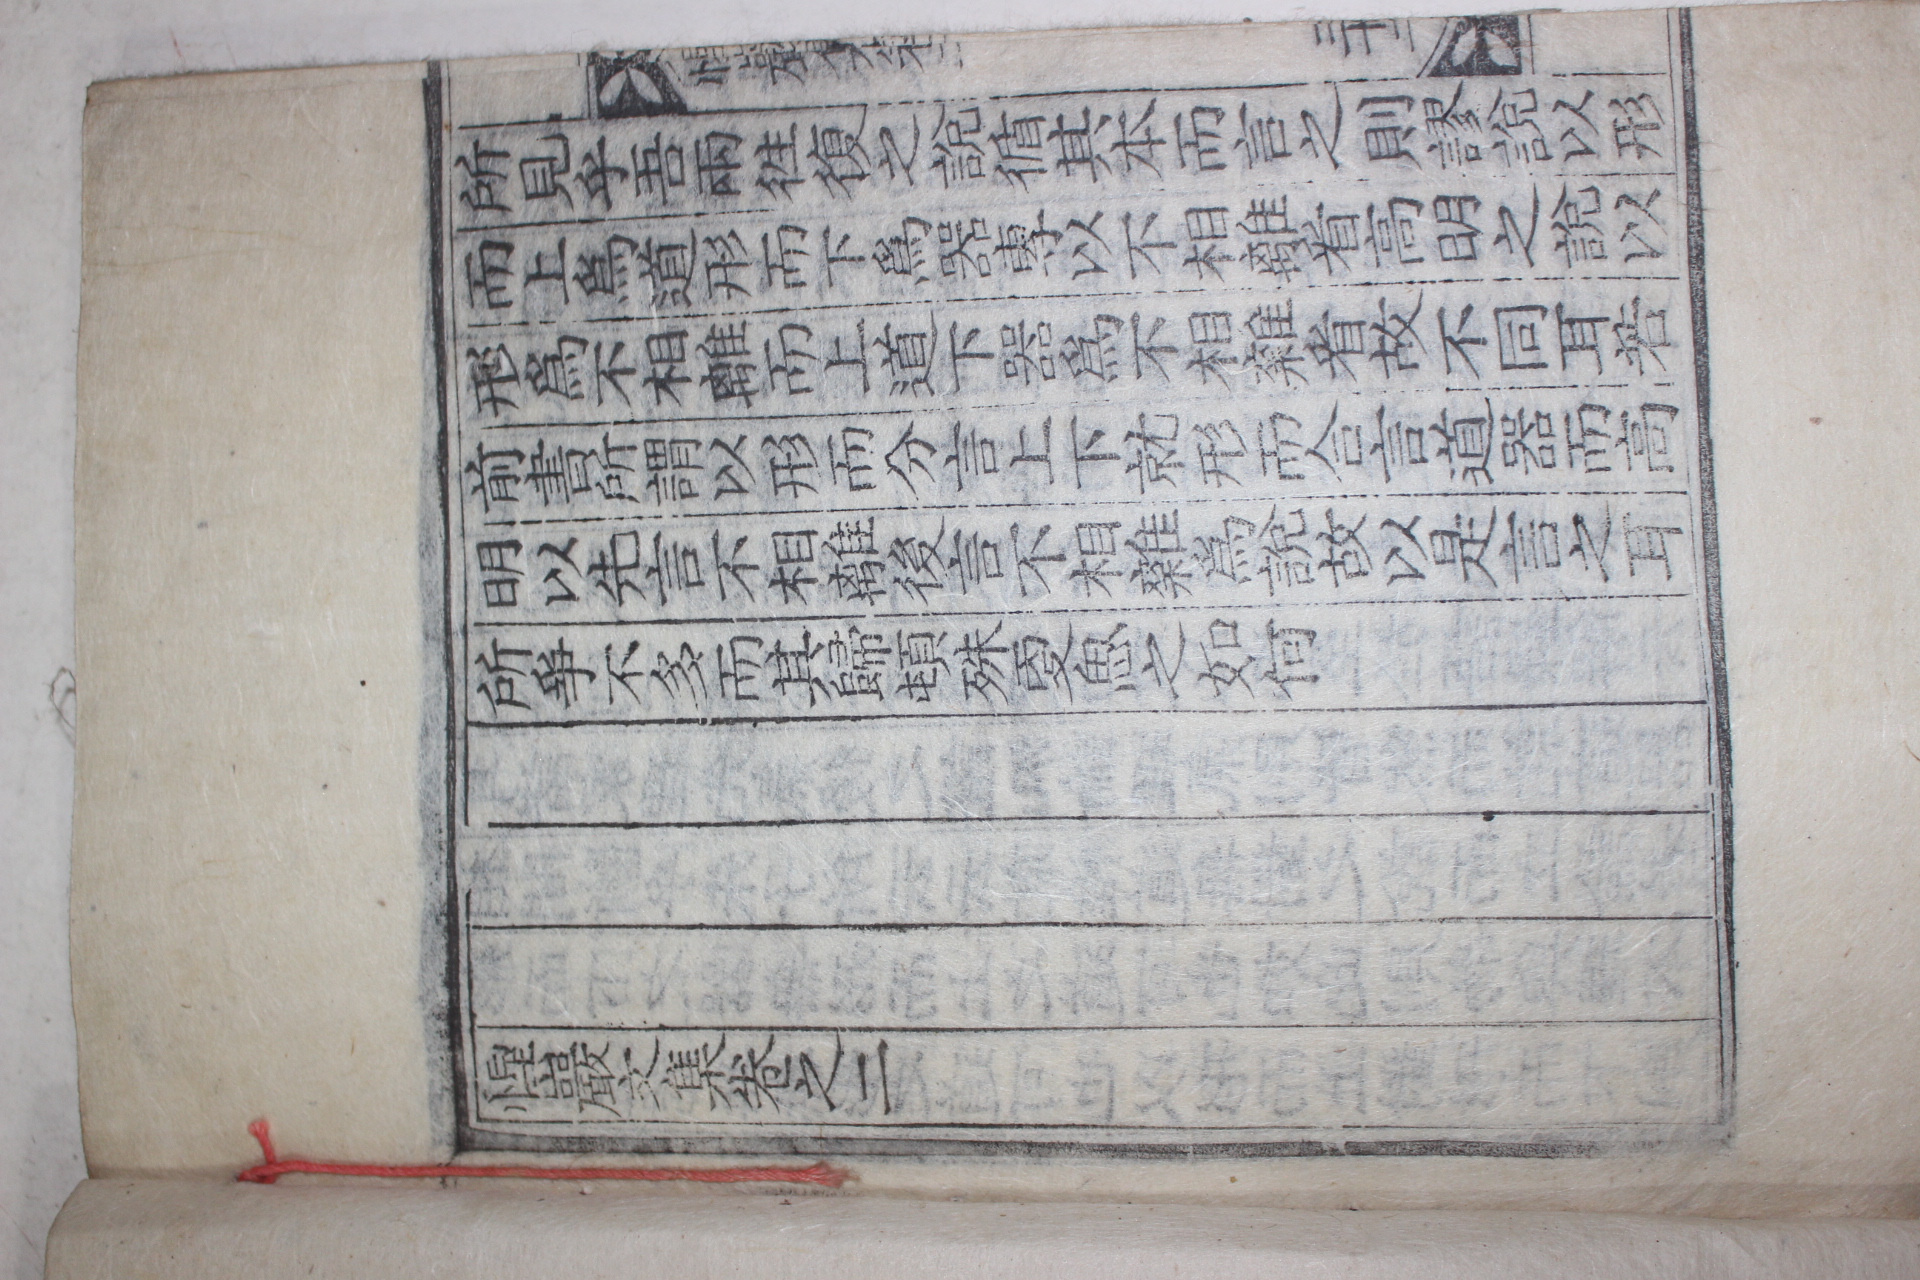 所見乎吾兩往復之說循其本而言之則謬說以形
而上爲道形而下爲器專以不相離者高明之說以
形爲不相離而上道下器爲不相雜者故不同耳若
前書所謂以形而分言上下就形而合言道器而高
明以先言不相離後言不相雜爲說故以是言之耳
所爭不多而其歸頓殊更思之如何
惺巖文集卷之二